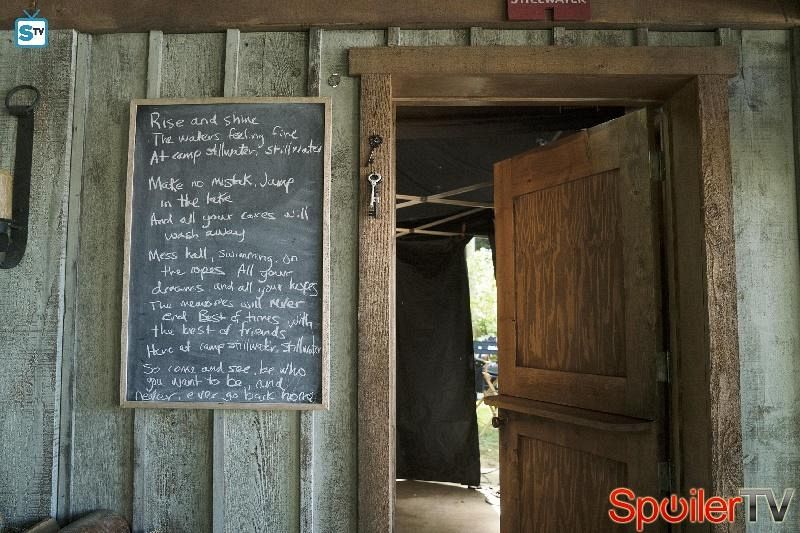 STV
STILLWATER
Rise and shine
The waters feeling fine
At camp stillwater, stillwater
Make no mistak, Jump
in the lake
And all your cares will
wash away
Mess hall, swimming, on
the ropes All your
dreams, and all your hopes
The memories will never
end Best of times with
the best of friends
Here at camp stillwater, stillwater
So come and see, be who
you want to be, and
never, ever go back home
SpoilerTV